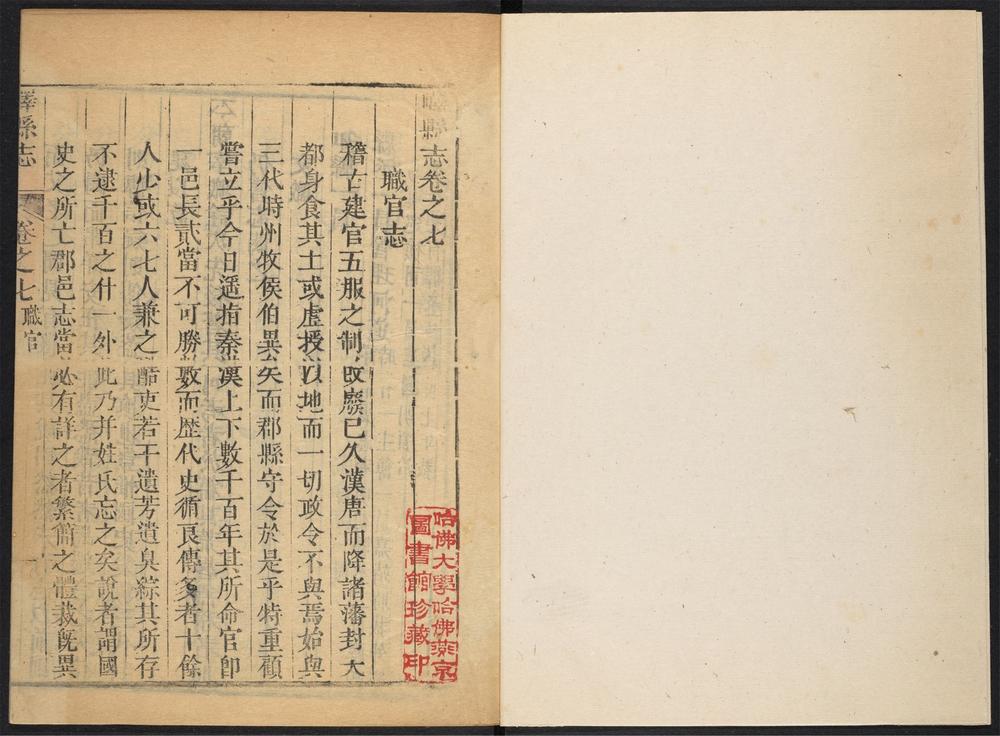 嶧縣志卷之七
職官志
稽古建官五服之制攺廢已久漢唐而降諸藩封大
都身食其土或虛授以地而一切政令不與焉始與
三代時州牧侯伯異矣而郡縣守令於是乎特重顧
嘗立乎今日遥指秦漢上下數千百年其所命官即
一邑長貳當不可勝數而歴代史循良傳多者十餘
人少或六七人兼之酷吏若干遺芳遺臭綜其所存
不逮千百之什一外此乃并姓氏忘之矣說者謂國
史之所亡郡邑志當必有詳之者繁簡之體裁旣異
嶧縣志
卷之七
職官
一
哈佛大學哈佛燕京
圖書館珍藏印